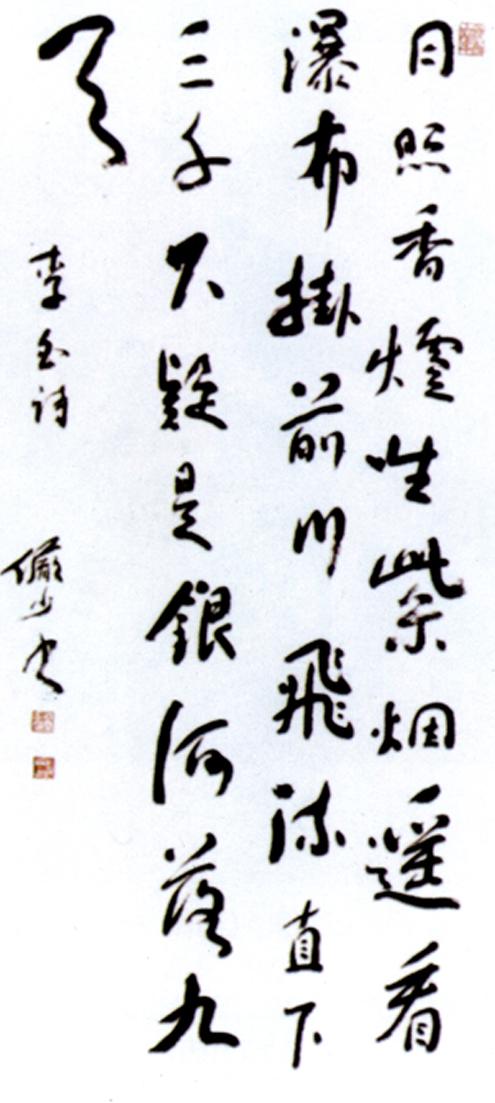 日照香爐生紫烟遥看
瀑布掛前川飛流直下
三千尺疑是銀河落九
天
李白诗
儼少书